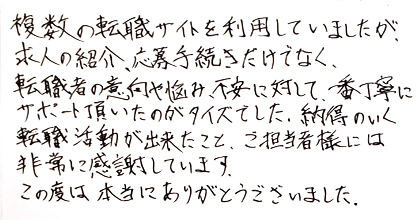 複数の転職サイトを利用していましたが、
求人の紹介、応募手続きだけでなく、
転職者の意向や悩み、不安に対して、一番丁寧に
サポート頂いたのがタイズでした。納得のいく
転職活動が出来たこと、ご担当者様には
非常に感謝しています。
この度は本当にありがとうございました。